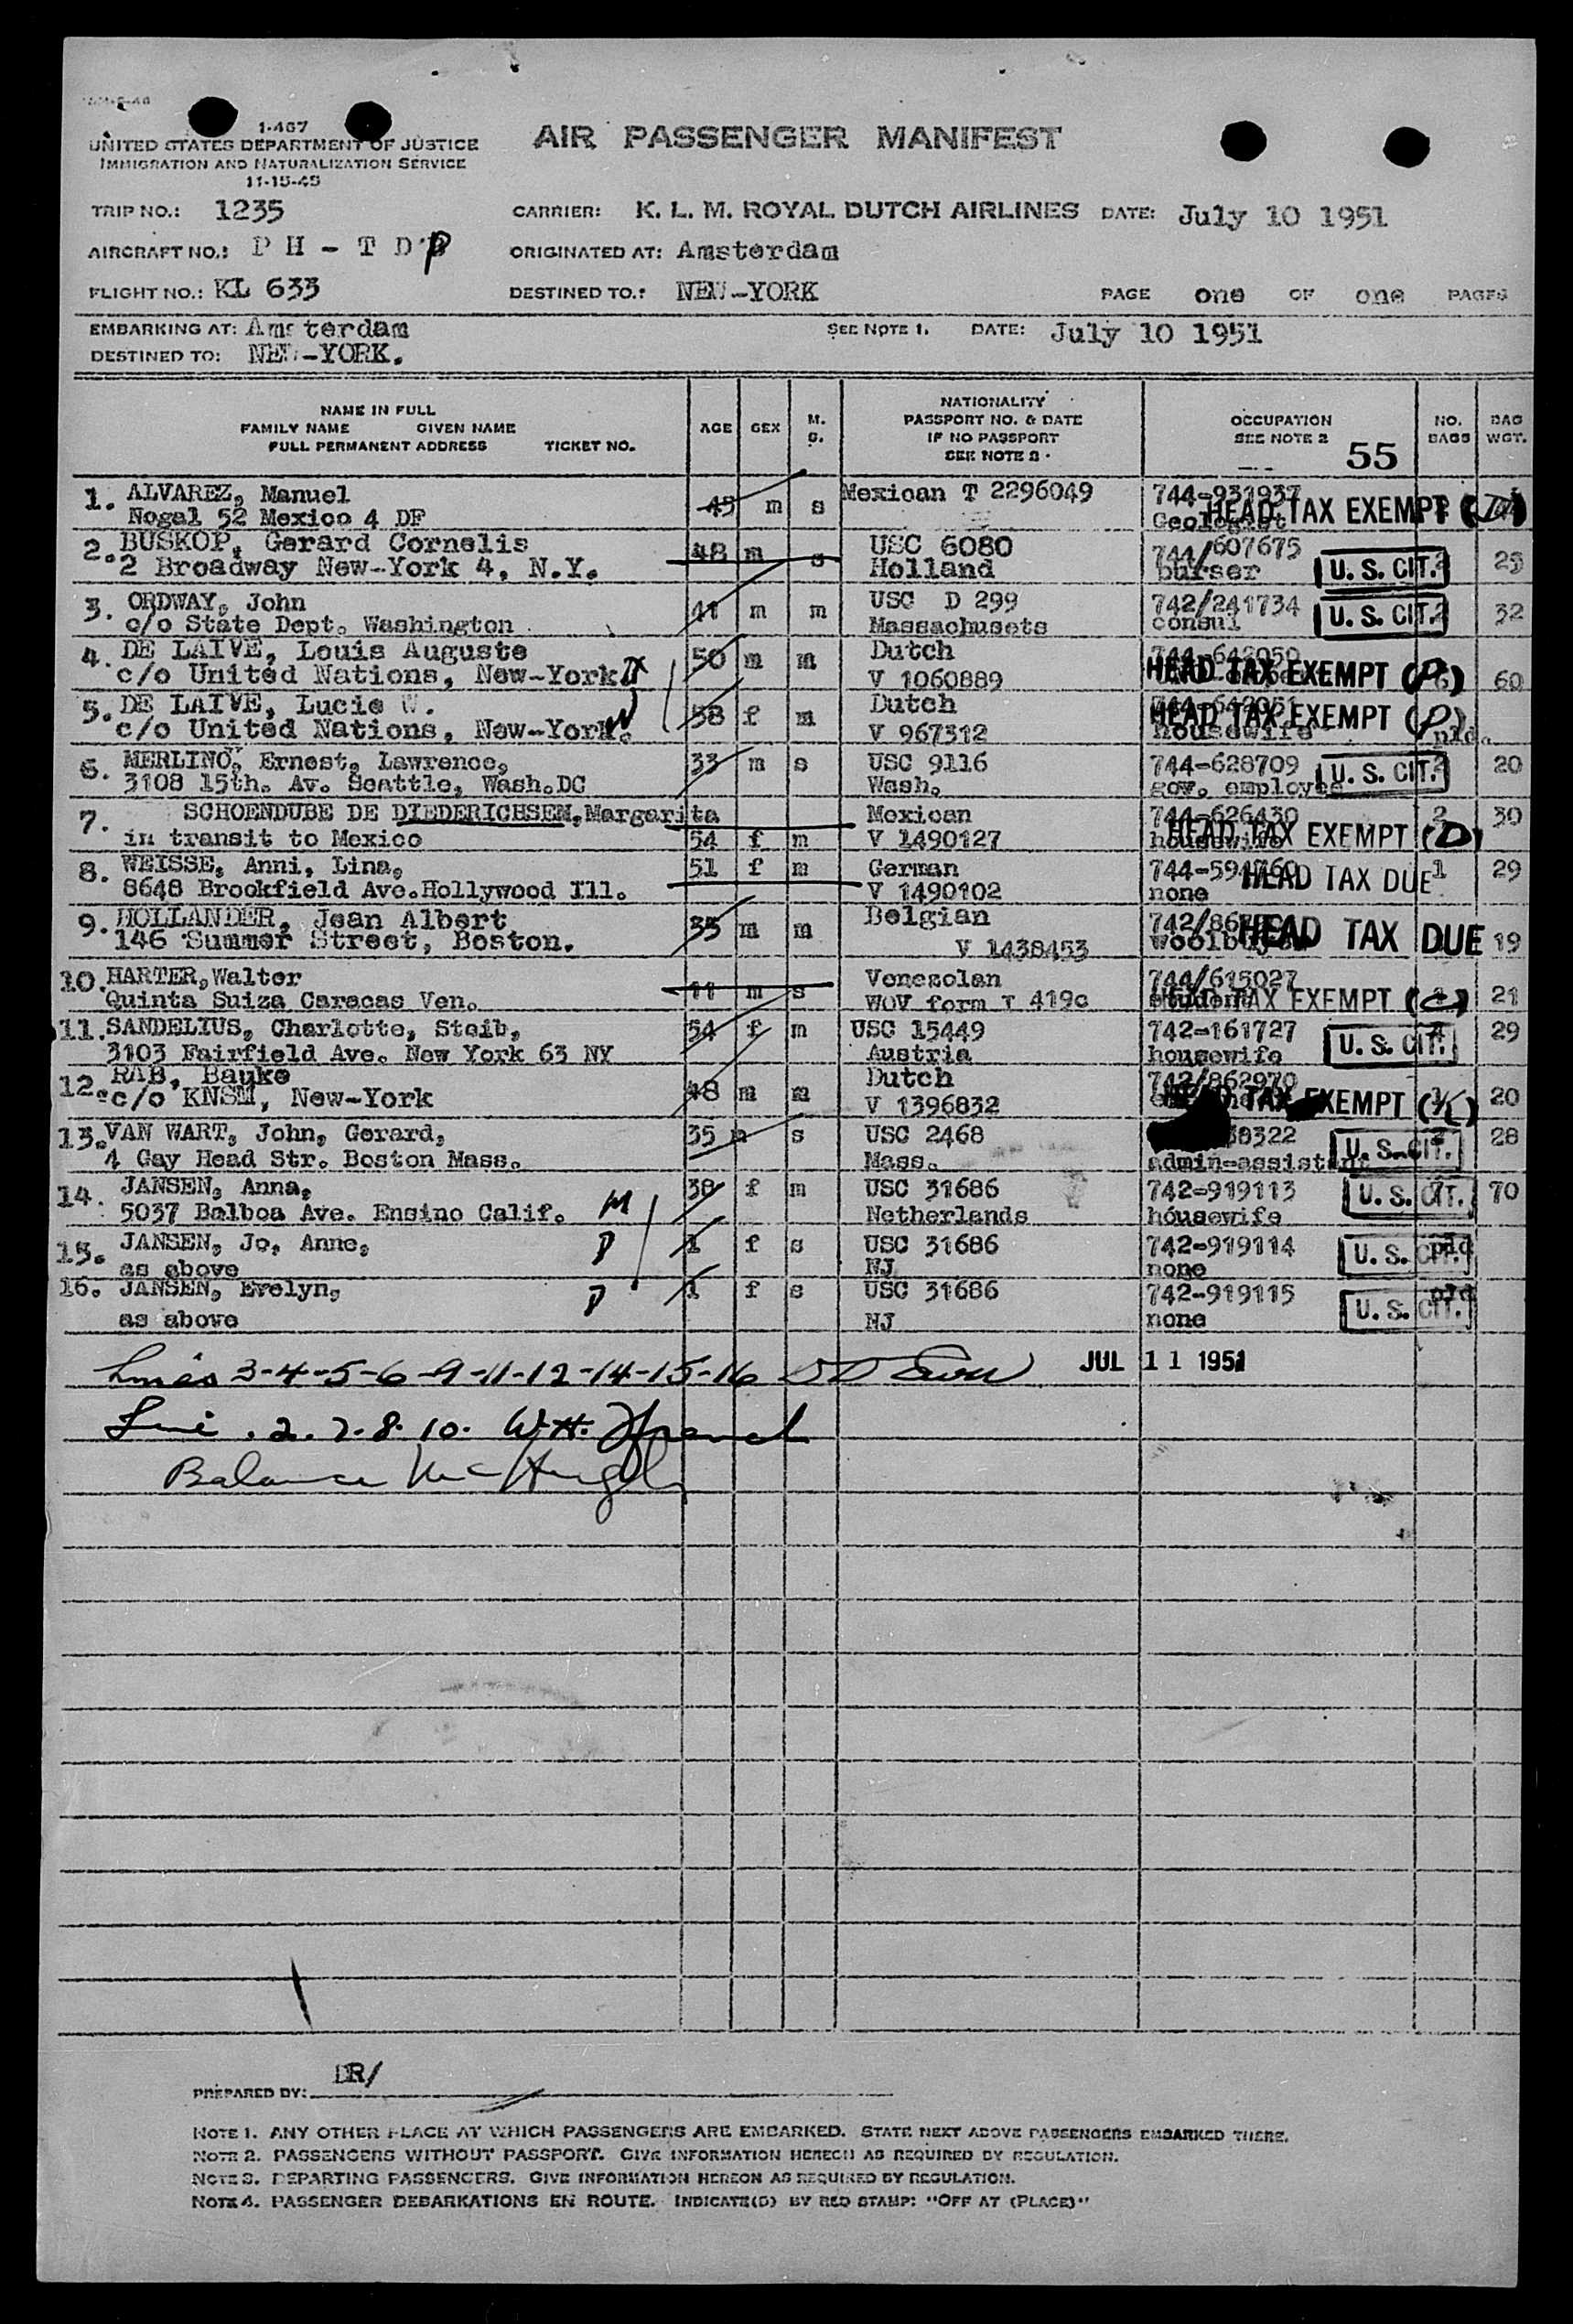 1-467
UNITED STATES DEPARTMENT OF JUSTICE
IMMIGRATION AND NATURALIZATION SERVICE
11-15-45
AIR PASSENGER MANIFEST
TRIP NO.: 1235
CARRIER: K. L. M. ROYAL DUTCH AIRLINES DATE: July 10 1951
AIRCRAFT NO.: P H - T D P
ORIGINATED AT: Amsterdam
FLIGHT NO.: KL 633
DESTINED TO.: NEW-YORK
PAGE one OF one PAGES
EMBARKING AT: Amsterdam
SEE NOTE 1. DATE: July 10 1951
DESTINED TO: NEW-YORK.
NAME IN FULL
FAMILY NAME GIVEN NAME
FULL PERMANENT ADDRESS TICKET NO.
AGE SEX M. S.
NATIONALITY
PASSPORT NO. & DATE
IF NO PASSPORT
SEE NOTE 2
OCCUPATION
SEE NOTE 2 55
NO. BAGS
BAG WGT.
1. ALVAREZ, Manuel 45 m s Mexican T 2296049 744-931937
Nogal 52 Mexico 4 DF Geologist HEAD TAX EXEMPT
2. BUSKOP, Gerard Cornelis 48 m s USC 6080 744/607675
2 Broadway New-York 4, N.Y. Holland purser U. S. CIT. 2 25
3. ORDWAY, John 41 m m USC D 299 742/241734
c/o State Dept. Washington Massachusets consul U. S. CIT. 2 32
4. DE LAIVE, Louis Auguste 50 m m Dutch 744-642050
c/o United Nations, New-York V 1060889 HEAD TAX EXEMPT (P) 60
5. DE LAIVE, Lucie W. 58 f m Dutch 744-642051
c/o United Nations, New-York. V 967312 housewife HEAD TAX EXEMPT (P)
6. MERLINO, Ernest, Lawrence, 33 m s USC 9116 744-628709 U. S. CIT. 2 20
3108 15th. Av. Seattle, Wash.DC Wash. gov. employee
7. SCHOENDUBE DE DIEDERICHSEN, Margarita Mexican 744-626430 2 30
in transit to Mexico 54 f m V 1490127 housewife HEAD TAX EXEMPT (D)
8. WEISSE, Anni, Lina, 51 f m German 744-591760 HEAD TAX DUE 1 29
8648 Brookfield Ave.Hollywood Ill. V 1490102 none
9. HOLLANDER, Jean Albert 35 m m Belgian 742/
146 Summer Street, Boston. V 1438453 HEAD TAX DUE 19
10. HARTER, Walter 11 m s Venezolan 744/615027
Quinta Suiza Caracas Ven. WOV form I 419c student HEAD TAX EXEMPT (C) 21
11. SANDELIUS, Charlotte, Steib, 54 f m USC 15449 742-161727 U. S. CIT. 29
3103 Fairfield Ave. New York 63 NY Austria housewife
12. RAB, Bauke 48 m m Dutch 742/862970
c/o KNSM, New-York V 1396832 HEAD TAX EXEMPT 20
13. VAN WART, John, Gerard, 35 m s USC 2468 38322 U. S. CIT. 28
4 Gay Head Str. Boston Mass. Mass. admin-assistant
14. JANSEN, Anna, M 38 f m USC 31686 742-919113 U. S. CIT. 7 70
5037 Balboa Ave. Ensino Calif. Netherlands housewife
15. JANSEN, Jo, Anne, 1 f s USC 31686 742-919114 U. S. CIT.
as above NJ none
16. JANSEN, Evelyn, 1 f s USC 31686 742-919115 U. S. CIT.
as above NJ none
Lines 3-4-5-6-9-11-12-14-15-16 JUL 11 1951
Line . 2. 7. 8. 10. W.H.
Balance McHugh
DR/
PREPARED BY:
NOTE 1. ANY OTHER PLACE AT WHICH PASSENGERS ARE EMBARKED. STATE NEXT ABOVE PASSENGERS EMBARKED THERE.
NOTE 2. PASSENGERS WITHOUT PASSPORT. GIVE INFORMATION HEREON AS REQUIRED BY REGULATION.
NOTE 3. DEPARTING PASSENGERS. GIVE INFORMATION HEREON AS REQUIRED BY REGULATION.
NOTE 4. PASSENGER DEBARKATIONS EN ROUTE. INDICATE(D) BY RED STAMP: "OFF AT (PLACE)"